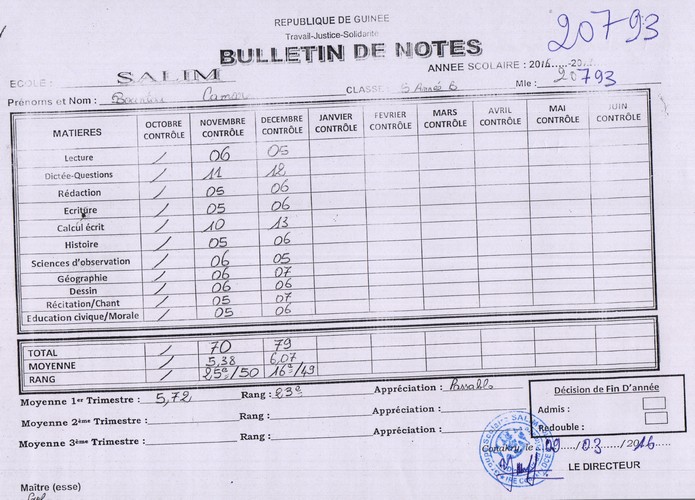 REPUBLIQUE DE GUINEE
Travail-Justice-Solidarité
20793
BULLETIN DE NOTES
ANNEE SCOLAIRE : 2014.....-20
ECOLE : SALIM
Mle : 20793
Prénoms et Nom : Camara CLASSE : 5 Année B
MATIERES OCTOBRE CONTRÔLE NOVEMBRE CONTRÔLE DECEMBRE CONTRÔLE JANVIER CONTRÔLE FEVRIER CONTRÔLE MARS CONTRÔLE AVRIL CONTRÔLE MAI CONTRÔLE JUIN CONTRÔLE
Lecture / 06 05
Dictée-Questions / 11 12
Rédaction / 05 06
Ecriture / 05 06
Calcul écrit / 10 13
Histoire / 05 06
Sciences d'observation / 06 05
Géographie / 06 07
Dessin / 06 06
Récitation/Chant / 05 07
Education civique/Morale / 05 06
TOTAL / 70 79
MOYENNE / 5,38 6,07
RANG / 25e/50 16e/49
Moyenne 1er Trimestre : 5,72 Rang : 23e Appréciation : Passable
Moyenne 2ème Trimestre : Rang : Appréciation :
Moyenne 3ème Trimestre : Rang : Appréciation :
Décision de Fin D'année
Admis :
Redouble :
Conakry, le 09/03/2016
LE DIRECTEUR
Maître (esse)